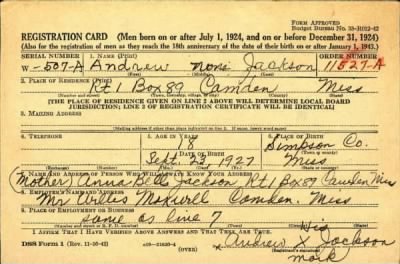 FORM APPROVED
Budget Bureau No. 33-R012-42
REGISTRATION CARD (Men born on or after July 1, 1924, and on or before December 31, 1924)
(Also for the registration of men as they reach the 18th anniversary of the date of their birth on or after January 1, 1943.)
SERIAL NUMBER 1. NAME (Print) ORDER NUMBER
W-507-A Andrew Jackson 11527-A
(First) (Middle) (Last)
2. PLACE OF RESIDENCE (Print)
Rt 1 Box 89 Camden Miss
[THE PLACE OF RESIDENCE GIVEN ON LINE 2 ABOVE WILL DETERMINE LOCAL BOARD
JURISDICTION; LINE 2 OF REGISTRATION CERTIFICATE WILL BE IDENTICAL]
3. MAILING ADDRESS
(Mailing address if other than place indicated on line 2. If same, insert word same)
4. TELEPHONE 5. AGE IN YEARS 6. PLACE OF BIRTH
18 Simpson Co.
DATE OF BIRTH
Sept. 23 1927 Miss
7. NAME AND ADDRESS OF PERSON WHO WILL ALWAYS KNOW YOUR ADDRESS
Mother Annie Bell Jackson Rt 1 Box 89 Camden Miss
8. EMPLOYER'S NAME AND ADDRESS
Mr Willis Maxwell Camden. Miss
9. PLACE OF EMPLOYMENT OR BUSINESS
same as line 7
I AFFIRM THAT I HAVE VERIFIED ABOVE ANSWERS AND THAT THEY ARE TRUE.
his
DSS Form 1 (Rev. 11-16-42) (OVER) Andrew X Jackson
mark